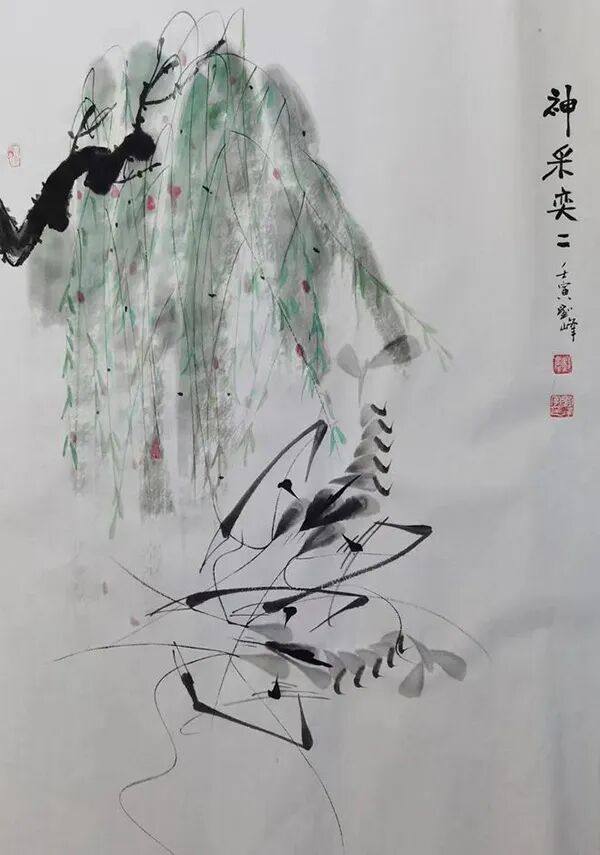 神采奕二
壬寅劉峰